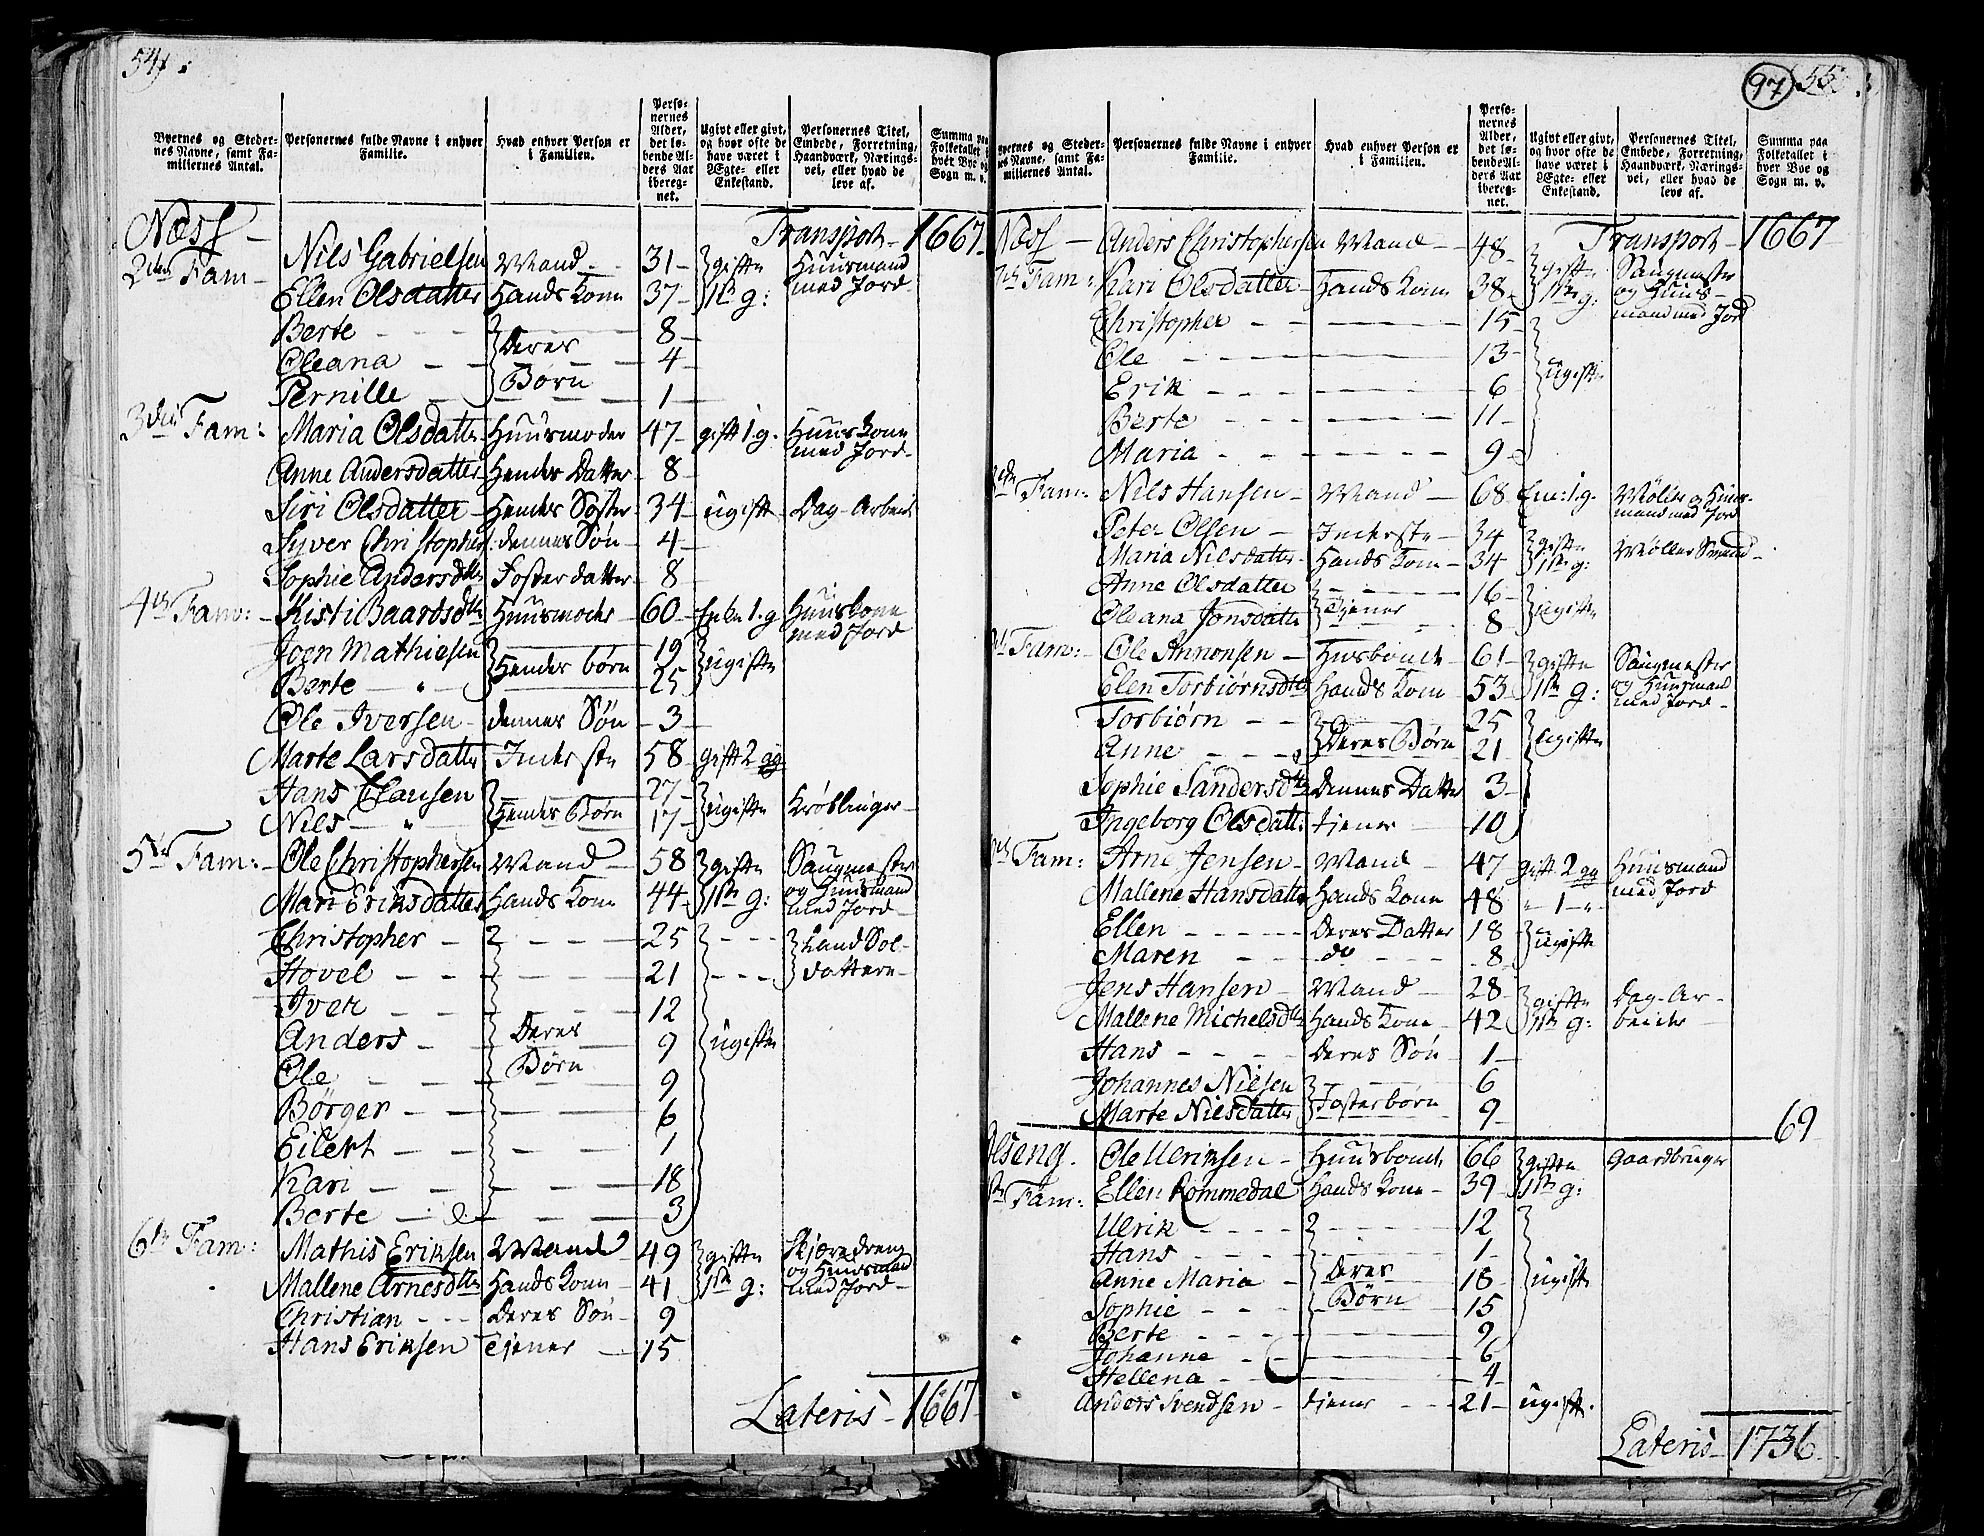 54.
Byernes og Stedernes Navne, samt Familiernes Antal.
Personernes fulde Navne i enhver Familie.
Hvad enhver Person er i Familien.
Personernes Alder, det løbende Alders Aar iberegnet.
Ugivt eller givt, og hvor ofte de have været i Ægte- eller Enkestand.
Personernes Titel, Embede, Forretning, Haandværk, Næringsvei, eller hvad de leve af.
Summa paa Folketallet i hver Bye og Sogn m. v.
Næss — Transport - 1667
2den Fam - Nils Gabrielsen Mand - 31 - gifte Huusmand
Ellen Olsdatter Hands Kone 37 - 1ste g: med Jord -
Berte - - - 8 -
Oleana - - Deres 4 -
Pernille - - Børn 1 -
3die Fam: Maria Olsdatter Huusmoder 47 - gift 1.g. Huuskone med Jord -
Anne Andersdatter Hendes Datter 8 -
Siri Olsdatter - Hendes Søster 34 - ugift Dag-Arbeid
Syver Christopher: dennes Søn - 4 -
Sophie Andersdtr Fosterdatter 8 -
4de Fam: - Kisti Baardsdtr Huusmoder 60 - Enke 1.g Huuskone med Jord
Joen Mathiesen 19
Berte — " — Hendes børn 25 ugifte
Ole Iversen - dennes Søn - 3 -
Marte Larsdatter Inderste 58 gift 2 gg
Hans Clausen 27 -
Nils — " Hendes Børn 17 - ugifte Krøblinger -
5te Fam: - Ole Christophersen Mand - 58 gifte Saugmester
Mari Eriksdatter Hands Kone 44 - 1ste g: og Huusmand med Jord -
Christopher - - - - 25 - - - Land Sol-
Hovel - - - - - 21 - - - datter -
Iver - - - 12
Anders - - Deres 9 ugifte
Ole - - Børn 9
Børger - - - 6
Eilert - - - 1
Kari - - - 18
Berte - - 3
6te Fam: Mathis Eriksen Mand 49 gifte Skjæredreng
Mallene Arnesdtr Hands Kone - 41 1ste g: og Huusmand med Jord -
Christian - - - Deres Søn - 9
Hans Eriksen Tjener - 15
Lateris - 1667 -
97 55.
Byernes og Stedernes Navne, samt Familiernes Antal.
Personernes fulde Navne i enhver Familie.
Hvad enhver Person er i Familien.
Personernes Alder, det løbende Alders Aar iberegnet.
Ugivt eller givt, og hvor ofte de have været i Ægte- eller Enkestand.
Personernes Titel, Embede, Forretning, Haandværk, Næringsvei, eller hvad de leve af.
Summa paa Folketallet i hver Bye og Sogn m. v.
Næss — Transport - 1667
Anders Christophersen Mand - 48 - gifte Saugmester
Fam: Kari Olsdatter - Hands Kone 38 - 1ste g: og Huusmand med Jord
Christopher - - - 15 -
Ole - - - 13 -
Erik - - - 6 ugifte
Berte - - - 11 -
Maria - - - 9 -
Fam: Nils Hansen - Mand - 68 - Enk: 1.g. Møller og Huusmand med Jord
Peter Olsen - Inderste - 34 gifte
Maria Nilsdatter Hands Kone - 34 1ste g: Møller Svend -
Anne Olsdatter - - - 16 -
Oleana Jonsdatter Tjener 8 ugifte
Fam: - Ole Annonsen - Husbonde 61 - gifte Saugmester
Elen Torbiørnsdtr Hands Kone 53 1ste g: og Huusmand med Jord -
Torbiørn - - 25
Anne - - Deres Børn 21 ugifte
Sophie Sandersdtr dennes Datter 3 -
Ingeborg Olsdatt: tjener - 10
Fam: Arne Jensen - Mand - 47 gift 2 gg Huusmand
Mallene Hansdatter Hands Kone 48 " - 1 - " med Jord
Ellen - - - Deres Datter 18
Maren - - - do - - 8 ugifte
Jens Hansen - Mand - 28 - gifte Dag-Ar-
Mallene Michelsdtr Hands Kone - 42 1ste g: beider
Hans - - - Deres Søn - 1 -
Johannes Nielsen - 6
Marte Nielsdatter Fosterbørn 9 -
69
Olseng. Ole Ulriksen - Huusbonde 66 gifte Gaardbruger
Fam: Ellen Rommedal Hands Kone - 39 - 1ste g:
Ulrik - - - 12
Hans - - - 1 -
Anne Maria - Deres 18 - ugifte
Sophie - - - Børn 15
Berte - - - 9
Johanne - - 6
Hellena - - 4
Anders Svendsen - tjener - - - 21 - ugift.
Lateris - 1736